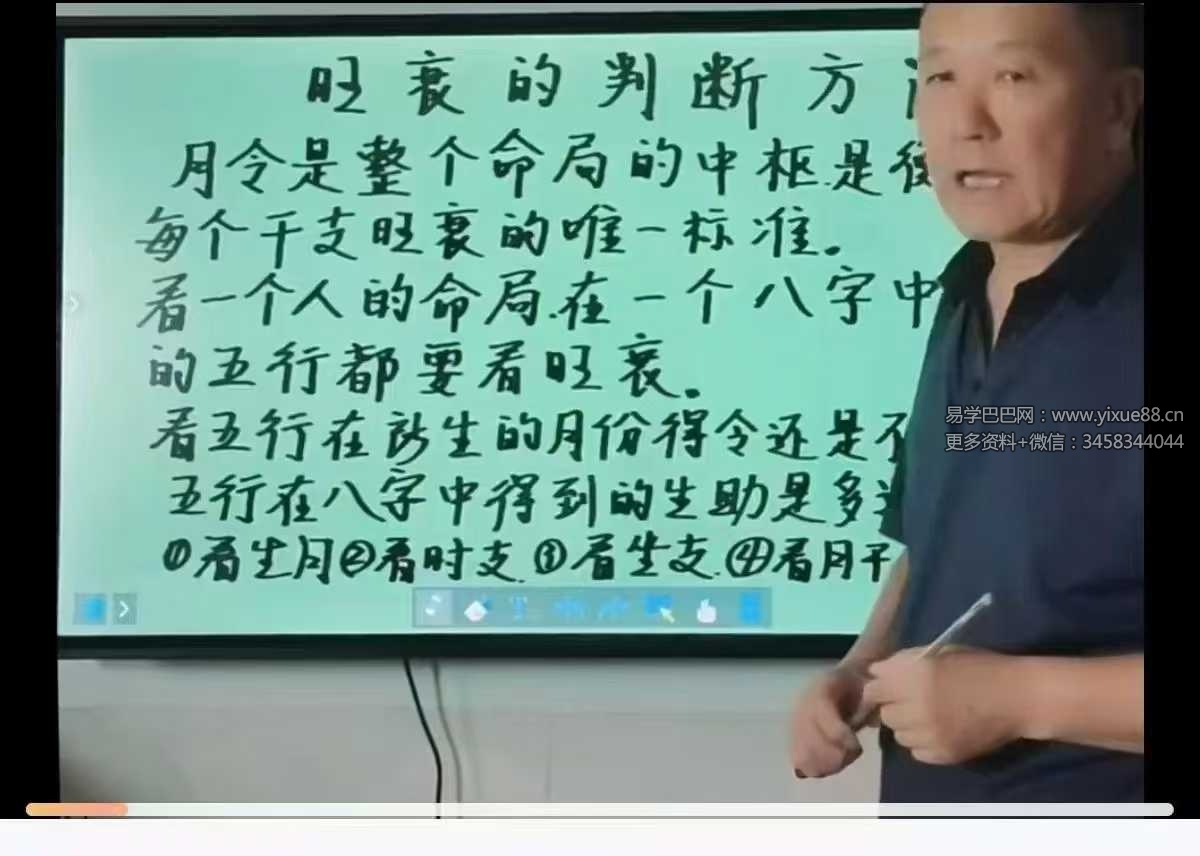 旺衰的判断方
月令是整个命局的中枢.是
每个干支旺衰的唯一标准。
看一个人的命局.在一个八字中
的五行都要看旺衰。
看五行在所生的月份得令还是不
五行在八字中得到的生助是多
①看生月②看时支.③看坐支.④看月干
易学巴巴网：www.yixue88.cn
更多资料+微信：3458344044